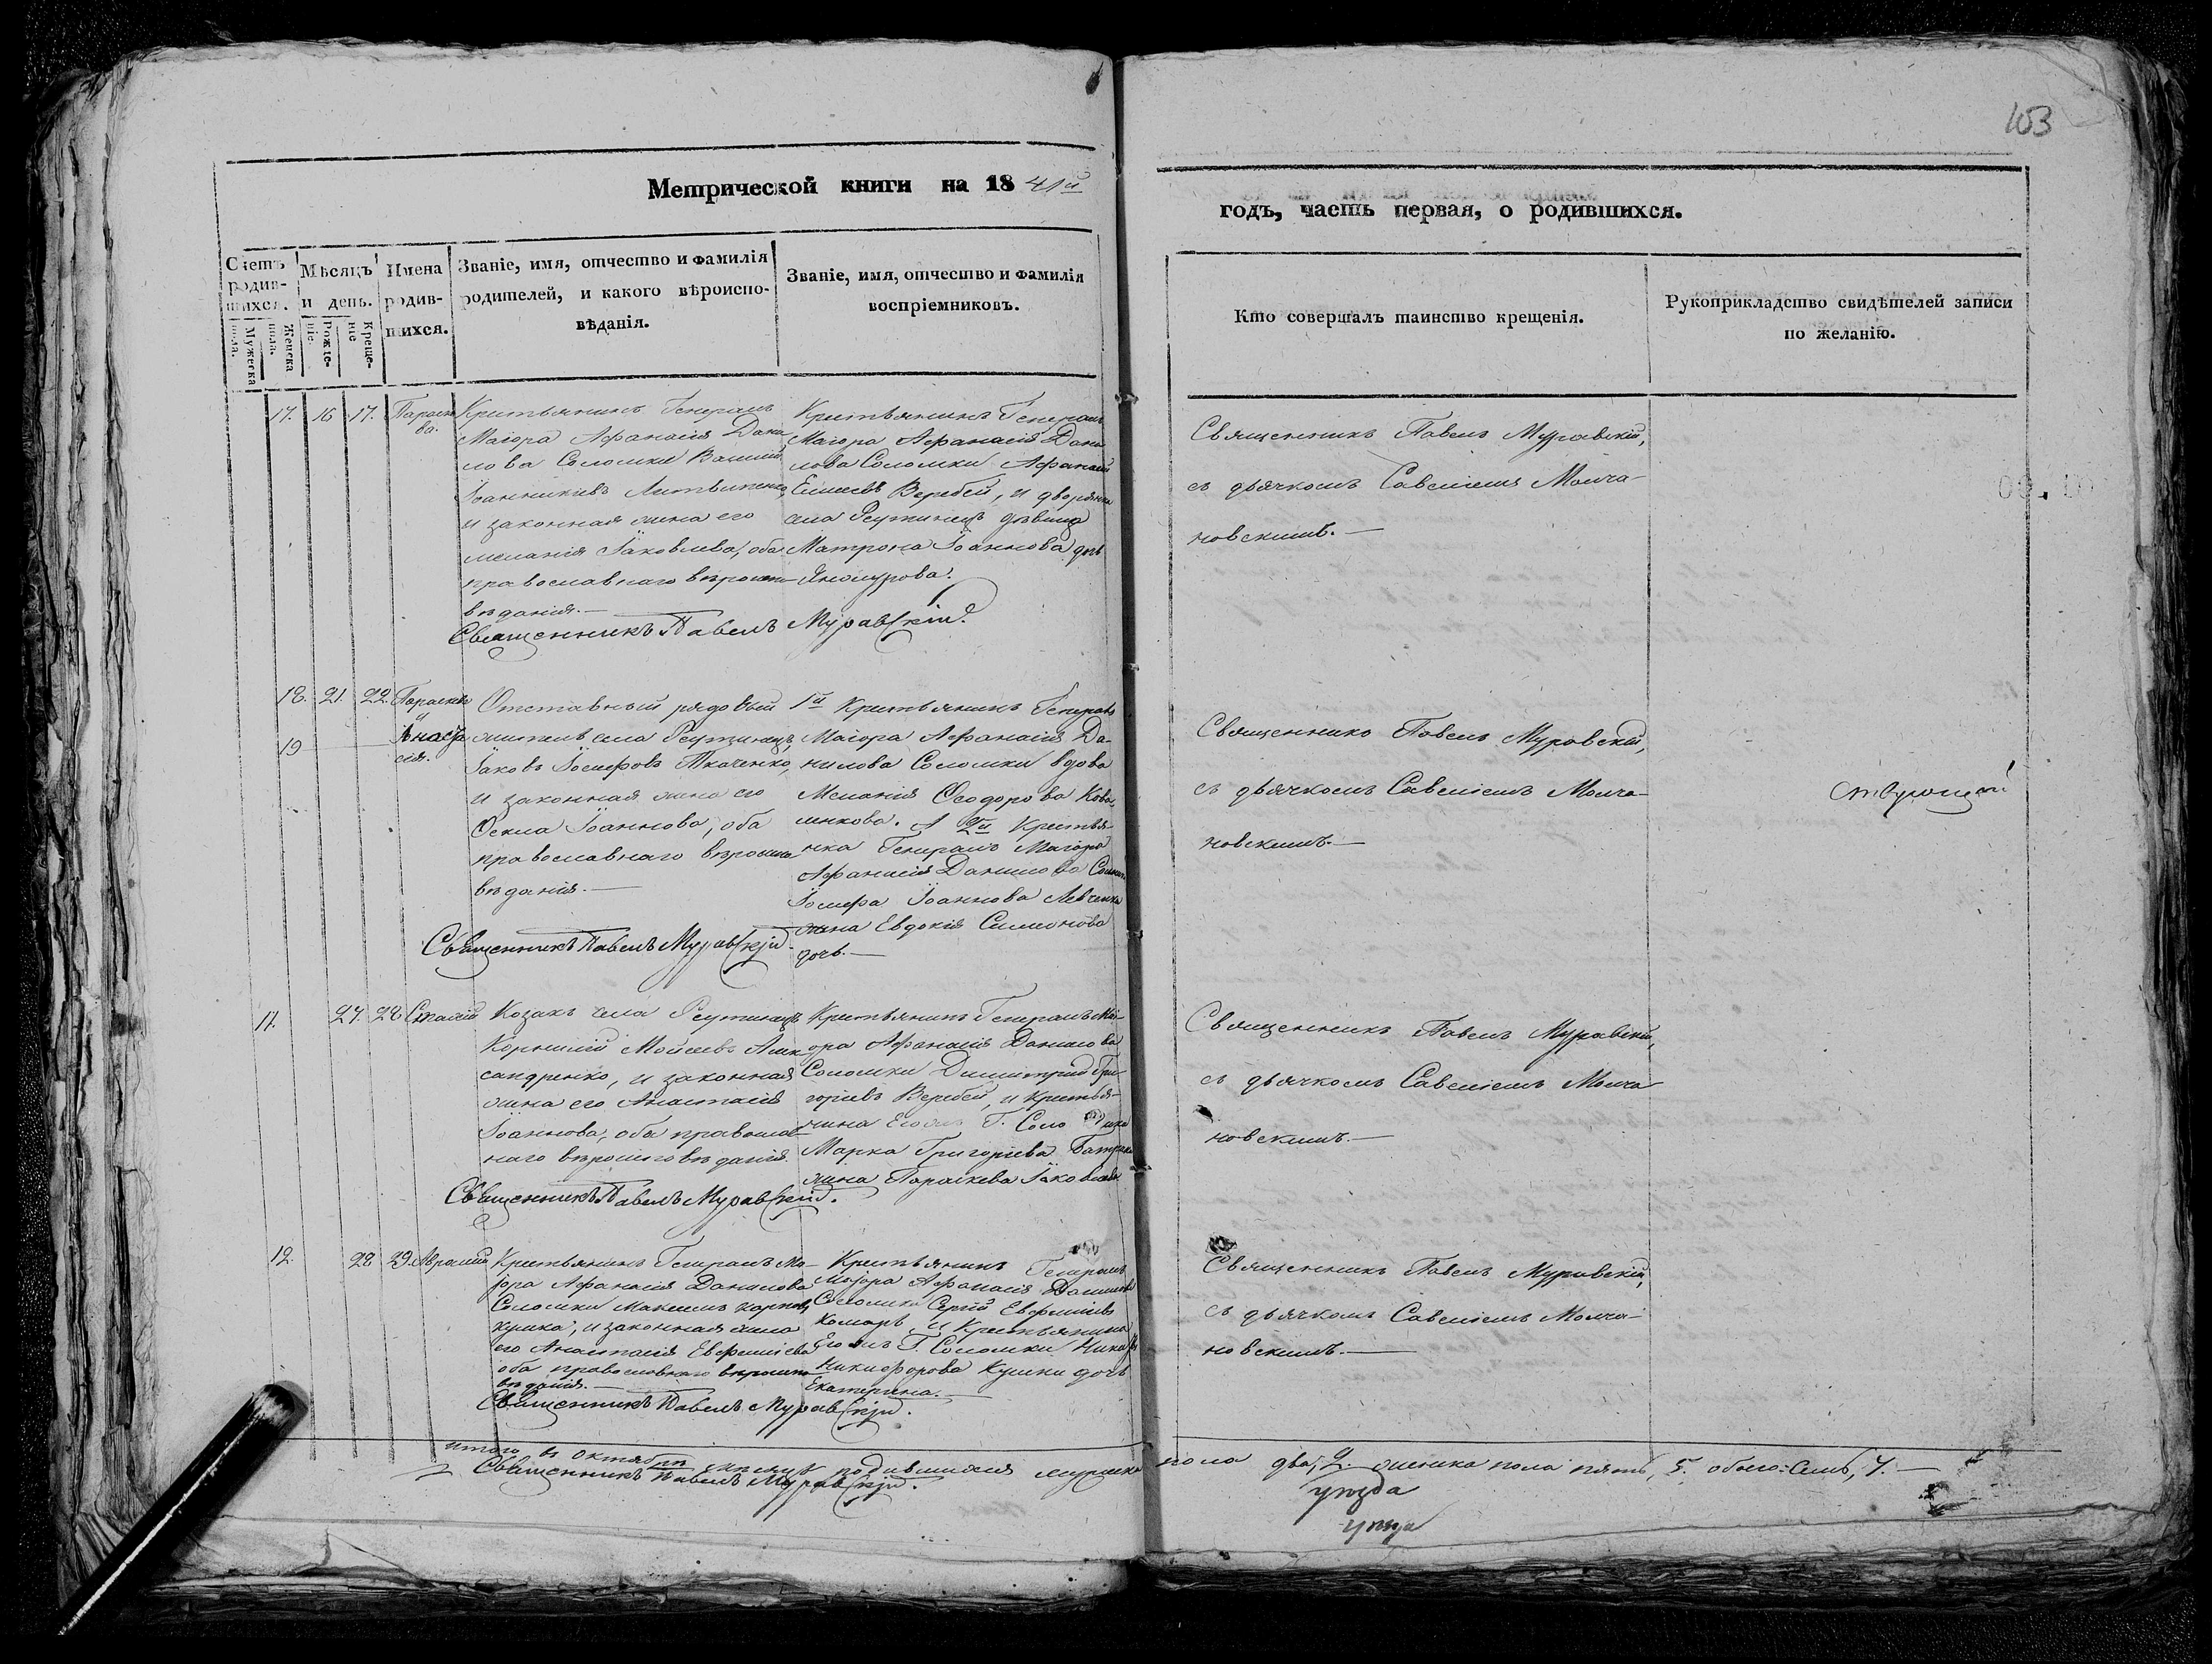 103
Метрической книги на 18 41й
годъ, часть первая, о родившихся.
Счетъ родив-шихся.
Мужеска пола.
Женска пола.
Мѣсяцъ и день.
Рожде-ніе.
Креще-ніе
Имена родив-шихся.
Званіе, имя, отчество и фамилія
родителей, и какого вѣроиспо-
вѣданія.
Званіе, имя, отчество и фамилія
воспріемниковъ.
Кто совершалъ таинство крещенія.
Рукоприкладство свидѣтелей записи
по желанію.
17. 16 17. Параске
ва.
Крестьянинъ Генералъ
Маіора Афанасія Дани
лова Соломки Василій
Іоанникіевъ Литвиненко,
и законная жена его
Меланія Іаковлева, оба
православнаго вѣроиспо
вѣданія.—
Крестьянинъ Генералъ
Маіора Афанасія Дани
лова Соломки Афанасій
Елисеевъ Веребей, и дворянка
села Реутинецъ дѣвица
Матрона Іоаннова дочь
Священникъ Павелъ Муравскій.
Священникъ Павелъ Муравскій,
съ дьячкомъ Савеліемъ Молча-
новскимъ.—
18. 21. 22. Параскева
и
19 Анаста
сія.
Отставный рядовый
житель села Реутинецъ,
Іаковъ Іосифовъ Ткаченко,
и законная жена его
Ѳекла Іоаннова, оба
православнаго вѣроиспо
вѣданія.—
1й Крестьянинъ Генералъ
Маіора Афанасія Да-
нилова Соломки вдова
Меланія Ѳеодорова Кова-
ленкова. А 2й Крестья-
нка Генералъ Маіора
Афанасія Данилова Соломки
Іосифа Іоаннова Левченка
жена Евдокія Симеонова
дочь.—
Священникъ Павелъ Муравскій.
Священникъ Павелъ Муравскій,
съ дьячкомъ Савеліемъ Молча-
новскимъ.—
ствующій
11. 27. 28
Козакъ села Реутинецъ
Корнилій Моисеевъ Алек
сандренко, и законная
жена его Анастасія
Іоаннова, оба православ
наго вѣроисповѣданія.
Крестьянинъ Генералъ Ма-
іора Афанасія Данилова
Соломки Димитрій Гри-
горіевъ Веребей, и крестья-
нина Его жъ Г. Соломки
Марка Григоріева
жена Параскева Іаковлева
Священникъ Павелъ Муравскій.
Священникъ Павелъ Муравскій,
съ дьячкомъ Савеліемъ Молча
новскимъ.—
12. 28 29. Аврамій
Крестьянинъ Генералъ Ма-
іора Афанасія Данилова
Соломки Максимъ Карповъ
Кушка, и законная жена
его Анастасія Евфиміева
оба православнаго вѣроиспо
вѣданія.—
Крестьянинъ Генералъ
Маіора Афанасія Данилова
Соломки Сергій Евфиміевъ
Комаръ, и Крестьянина
Его жъ Г. Соломки
Никифорова Кушки дочь
Екатерина.—
Священникъ Павелъ Муравскій.
Священникъ Павелъ Муравскій,
съ дьячкомъ Савеліемъ Молча-
новскимъ.—
итого въ октябрѣ мѣсяцѣ родившихся мужеска пола два, 2. женска пола пять, 5. обоего: Семь, 7.—
Священникъ Павелъ Муравскій.
уѣзда
уѣзда